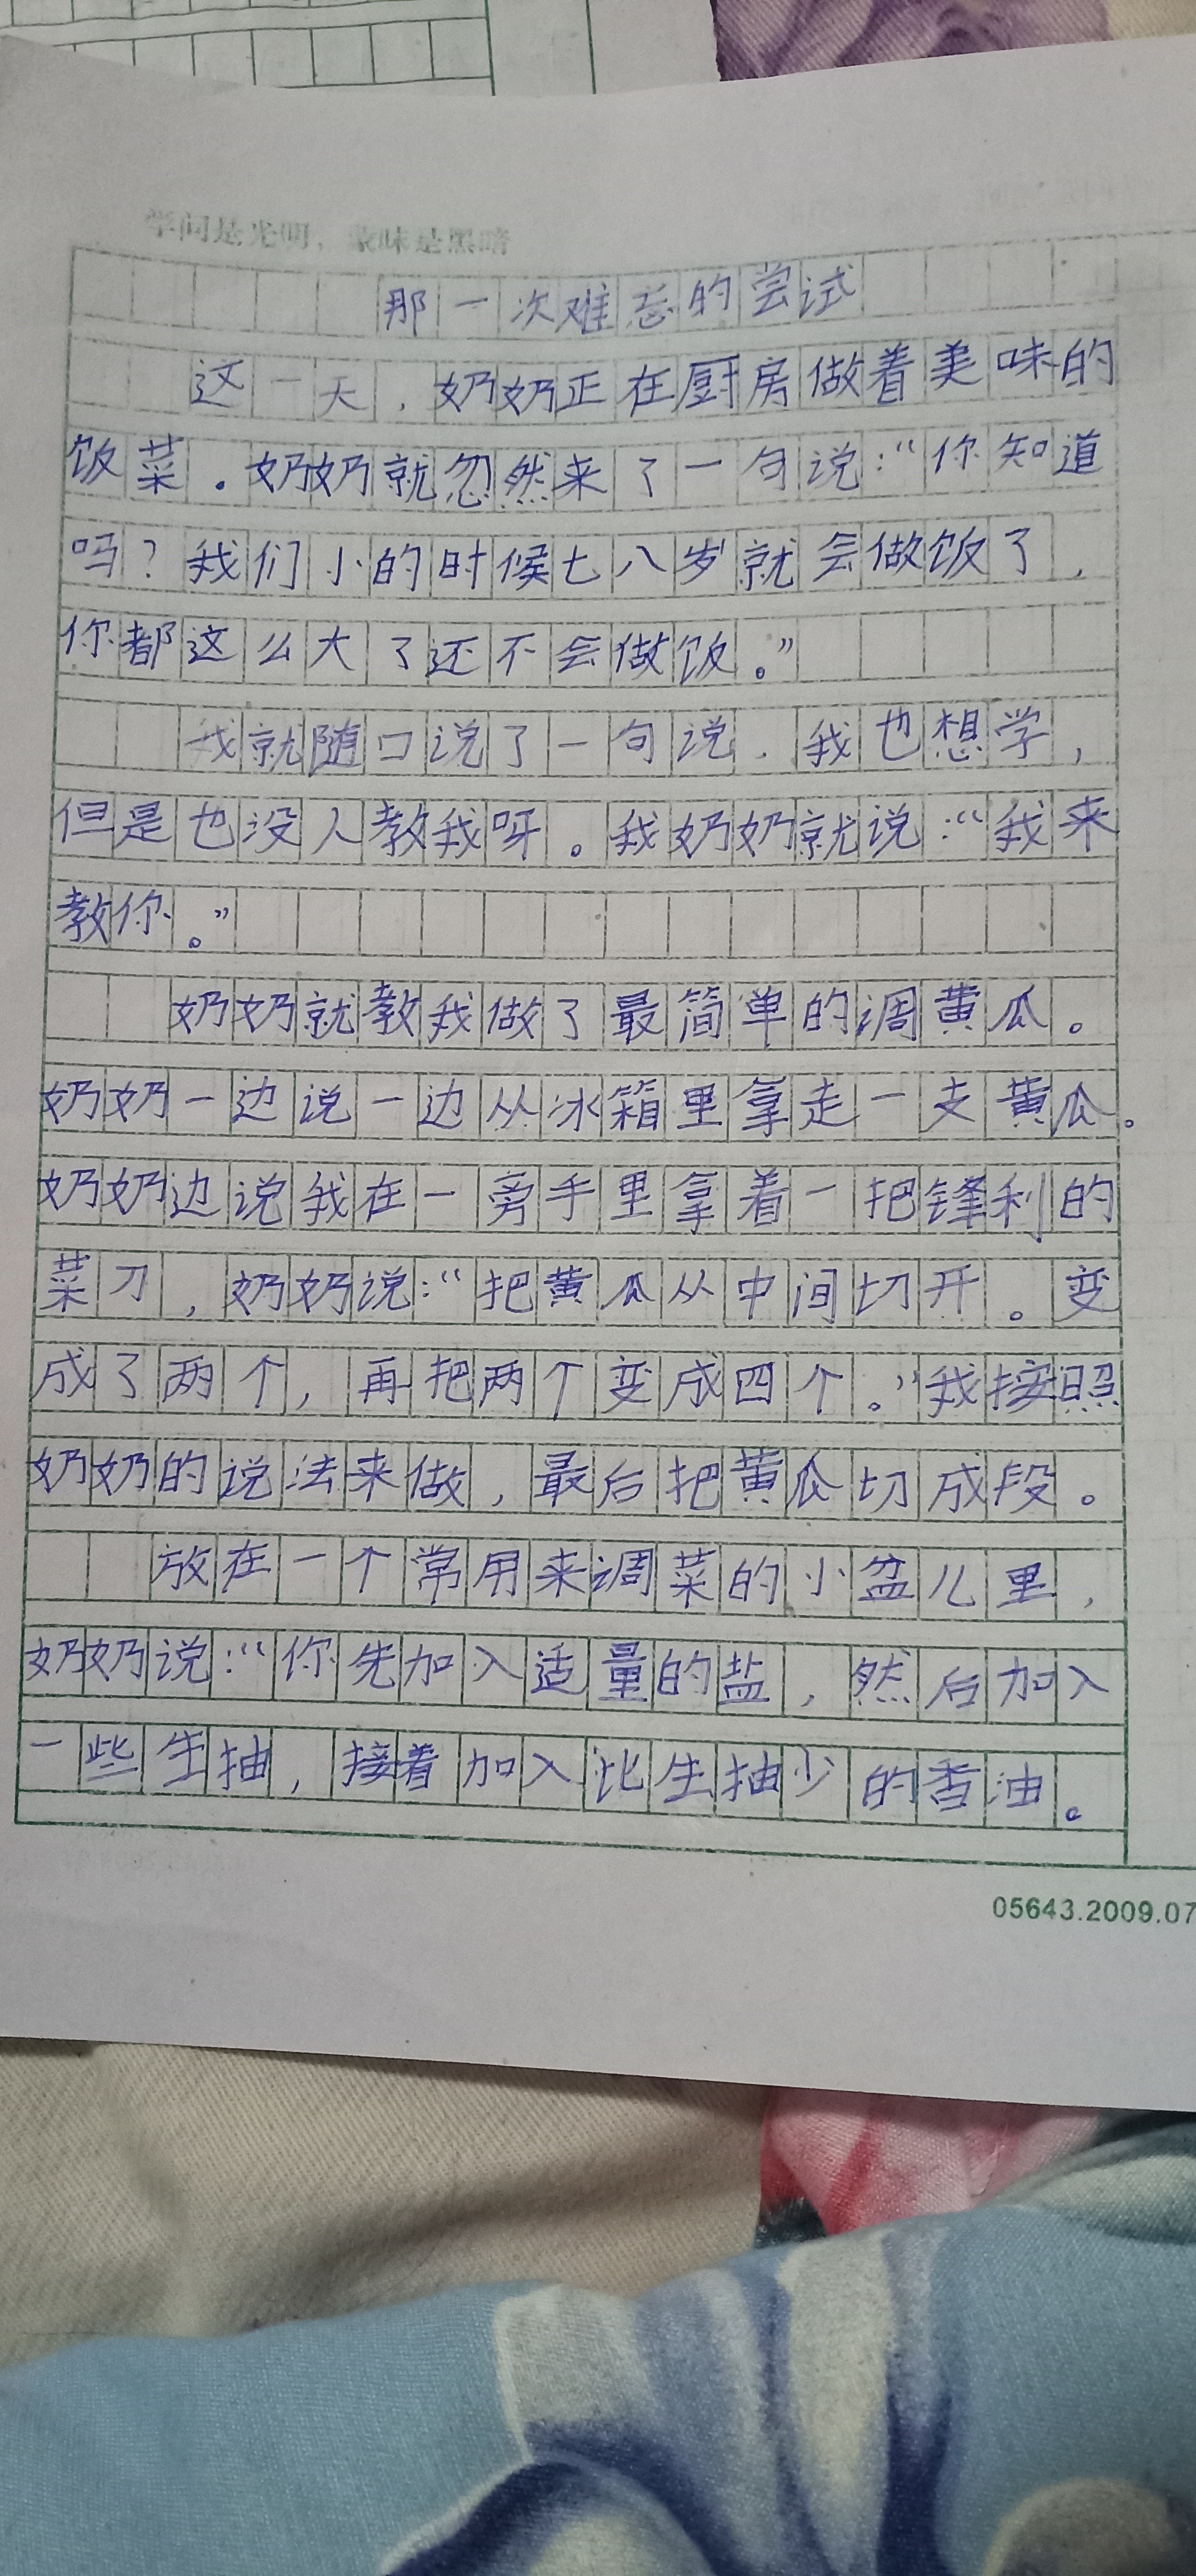 学问是光明，蒙昧是黑暗
那一次难忘的尝试
这一天，奶奶正在厨房做着美味的
饭菜。奶奶就忽然来了一句说：“你知道
吗？我们小的时候七八岁就会做饭了，
你都这么大了还不会做饭。”
我就随口说了一句说．我也想学，
但是也没人教我呀。我奶奶就说：“我来
教你。”
奶奶就教我做了最简单的调黄瓜。
奶奶一边说一边从冰箱里拿走一支黄瓜。
奶奶边说我在一旁手里拿着一把锋利的
菜刀，奶奶说：“把黄瓜从中间切开。变
成了两个，再把两个变成四个。”我按照
奶奶的说法来做，最后把黄瓜切成段。
放在一个常用来调菜的小盆儿里，
奶奶说：“你先加入适量的盐，然后加入
一些生抽，接着加入比生抽少的香油。
05643.2009.07